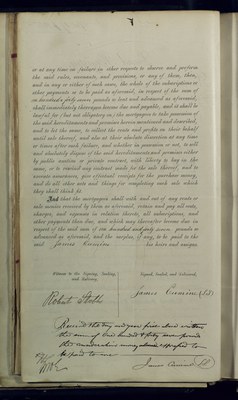 or at any time on failure in other respects to observe and perform
the said rules, covenants, and provisions, or any of them, then,
and in any or either of such cases, the whole of the subscriptions or
other payments so to be paid as aforesaid, in respect of the sum of
one hundred & forty seven pounds so lent and advanced as aforesaid,
shall immediately thereupon become due and payable, and it shall be
lawful for (but not obligatory on) the mortgagees to take possession of
the said hereditaments and premises herein mentioned and described,
and to let the same, to collect the rents and profits on their behalf
until sale thereof, and also at their absolute discretion at any time
or times after such failure, and whether in possession or not, to sell
and absolutely dispose of the said hereditaments and premises either
by public auction or private contract, with liberty to buy in the
same, or to rescind any contract made for the sale thereof, and to
execute assurances, give effectual receipts for the purchase money,
and do all other acts and things for completing such sale which
they shall think fit.
And that the mortgagees shall with and out of any rents or
sale monies received by them as aforesaid, retain and pay all costs,
charges, and expenses in relation thereto, all subscriptions, and
other payments then due, and which may thereafter become due in
respect of the said sum of one hundred and forty seven pounds so
advanced as aforesaid, and the surplus, if any, to be paid to the
said James Cunnion his heirs and assigns
Witness to the Signing, Sealing
and Delivery,
Signed, Sealed, and Delivered,
Robert Stott
James Cunnion (LS)
Received the day and year first above written
the sum of One hundred & forty seven pounds
the consideration money above expressed to
be paid to me
James Cunnion LS